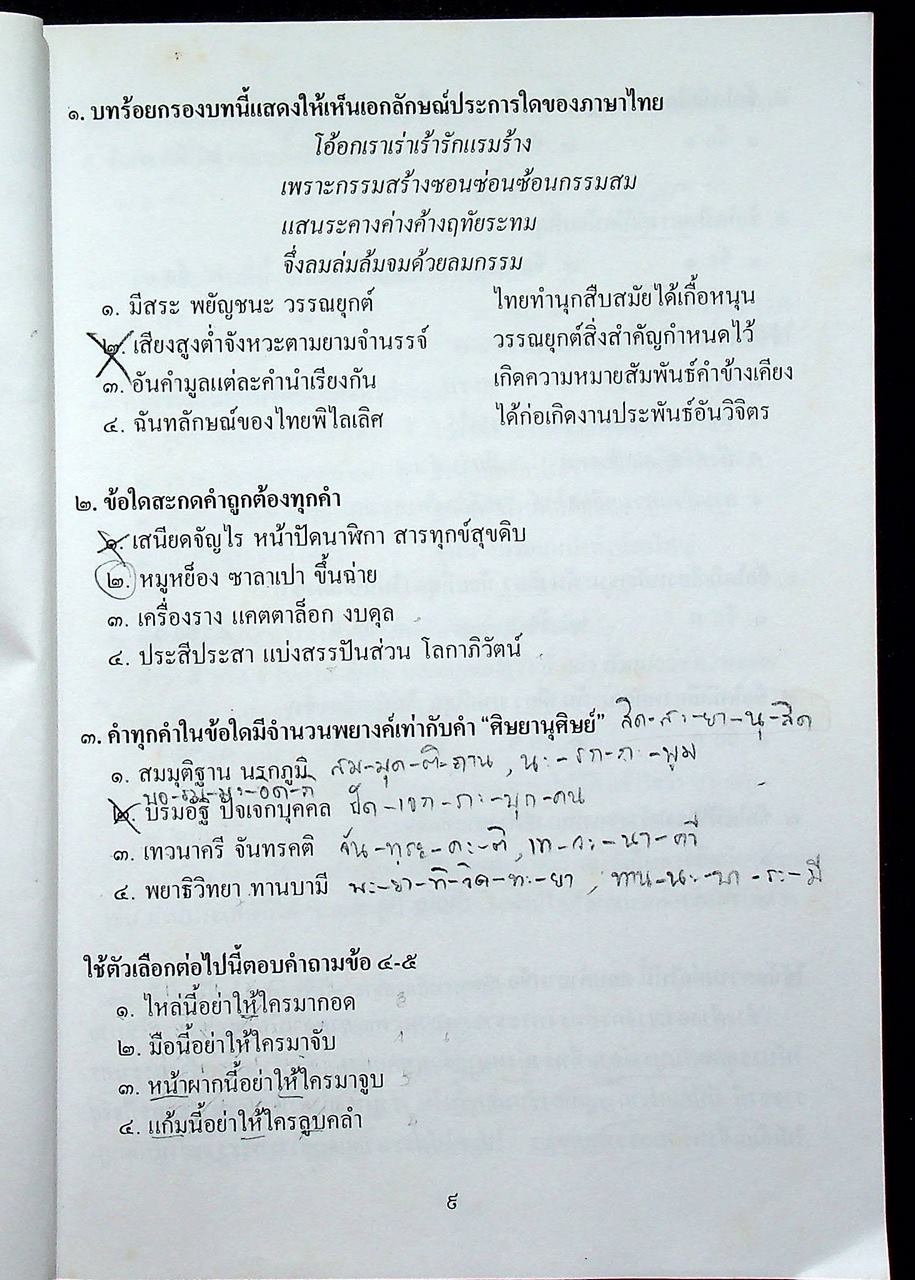 ๑. บทร้อยกรองบทนี้แสดงให้เห็นเอกลักษณ์ประการใดของภาษาไทย
โอ้อกเราเร่าเร้ารักแรมร้าง
เพราะกรรมสร้างซอนซ่อนซ้อนกรรมสม
แสนระคางค่างค้างฤทัยระทม
จึ่งลมล่มล้มจมด้วยลมกรรม
๑. มีสระ พยัญชนะ วรรณยุกต์ ไทยทำนุกสืบสมัยได้เกื้อหนุน
๒. เสียงสูงต่ำจังหวะตามยามจำนรรจ์ วรรณยุกต์สิ่งสำคัญกำหนดไว้
๓. อันคำมูลแต่ละคำนำเรียงกัน เกิดความหมายสัมพันธ์คำข้างเคียง
๔. ฉันทลักษณ์ของไทยพิไลเลิศ ได้ก่อเกิดงานประพันธ์อันวิจิตร
๒. ข้อใดสะกดคำถูกต้องทุกคำ
๑. เสนียดจัญไร หน้าปัดนาฬิกา สารทุกข์สุขดิบ
๒. หมูหย็อง ซาลาเปา ขึ้นฉ่าย
๓. เครื่องราง แคตตาล็อก งบดุล
๔. ประสีประสา แบ่งสรรปันส่วน โลกาภิวัตน์
๓. คำทุกคำในข้อใดมีจำนวนพยางค์เท่ากับคำ “ศิษยานุศิษย์” สิด-สะ-ยา-นุ-สิด
๑. สมมุติฐาน นรกภูมิ สม-มุด-ติ-ถาน , นะ-รก-กะ-พูม
บอ-รม-มะ-อัด-ถิ
๒. บรมอัฐิ ปัจเจกบุคคล ปัด-เจก-กะ-บุก-คน
๓. เทวนาครี จันทรคติ จัน-ทระ-คะ-ติ , เท-วะ-นา-คี
๔. พยาธิวิทยา ทานบามี พะ-ยา-ทิ-วิด-ทะ-ยา , ทาน-นะ-บา-ระ-มี
ใช้ตัวเลือกต่อไปนี้ตอบคำถามข้อ ๔-๕
๑. ไหล่นี้อย่าให้ใครมากอด
๒. มือนี้อย่าให้ใครมาจับ
๓. หน้าผากนี้อย่าให้ใครมาจูบ
๔. แก้มนี้อย่าให้ใครลูบคลำ
๙